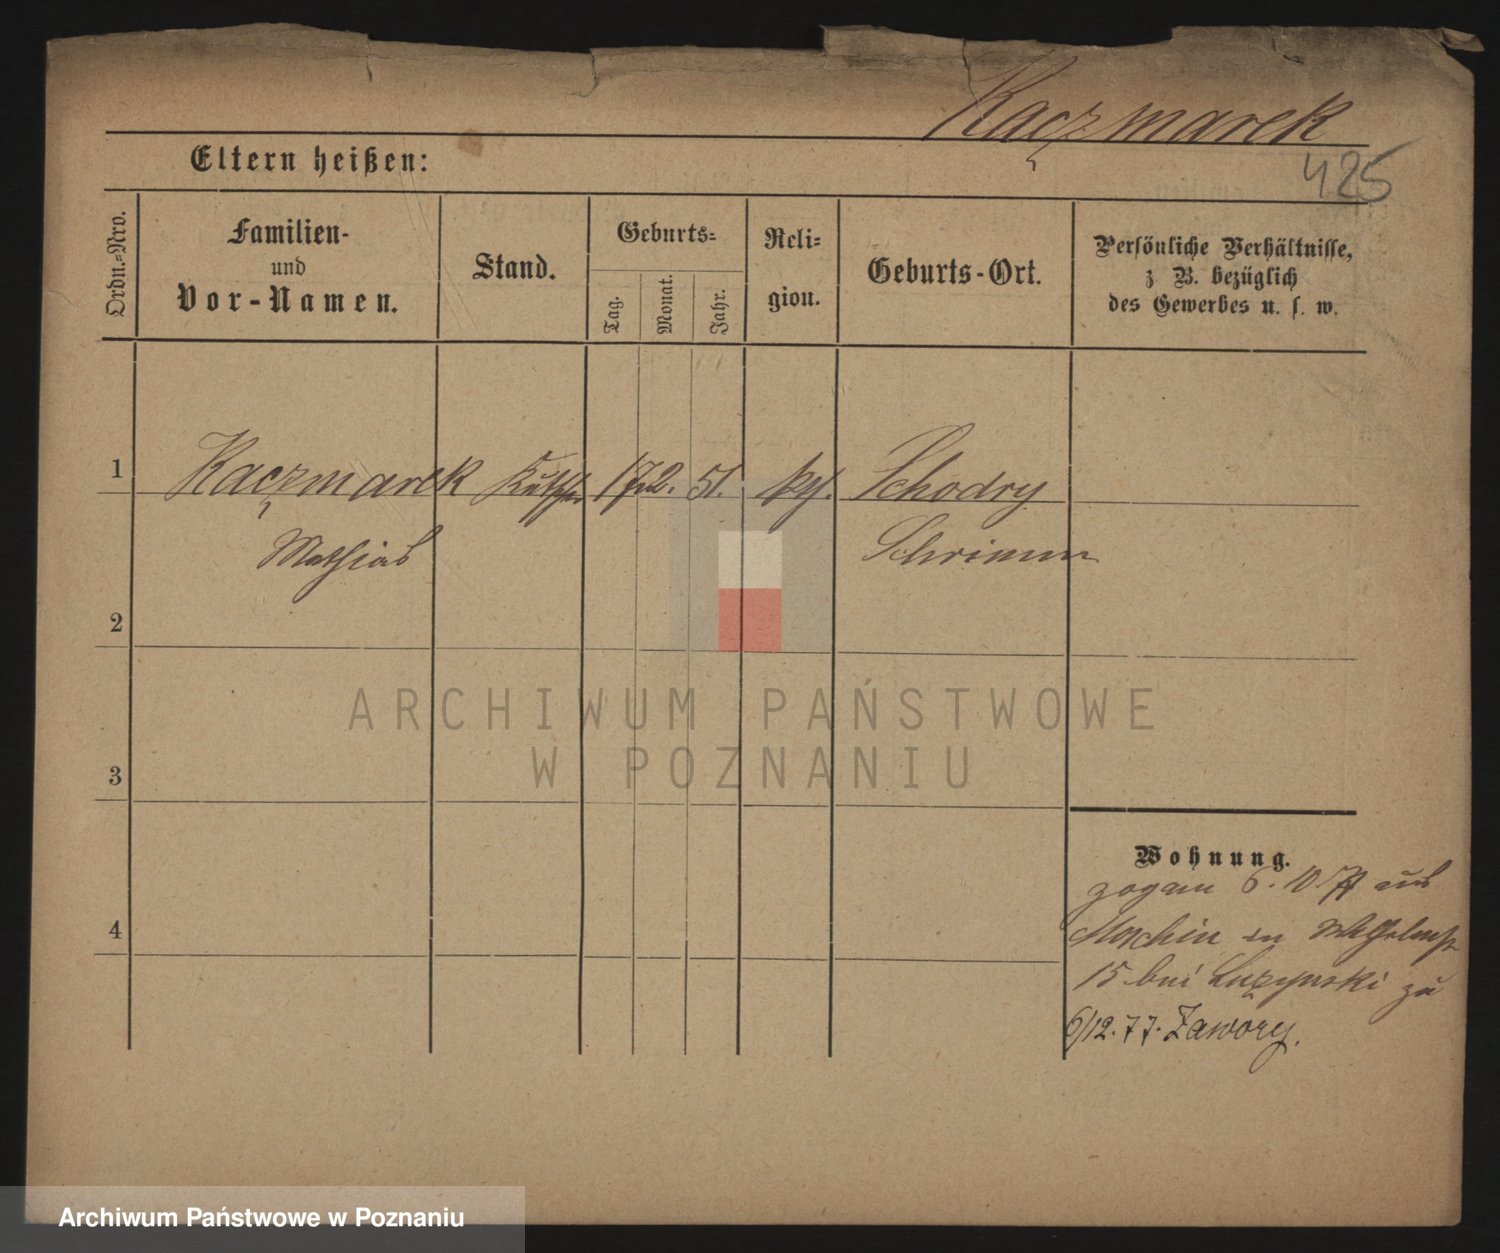 Kaczmarek
425
Eltern heißen:
Ordn.-Nro.
Familien-
und
Vor-Namen.
Stand.
Geburts-
Tag.
Monat.
Jahr.
Reli-
gion.
Geburts-Ort.
Persönliche Verhältnisse,
z. B. bezüglich
des Gewerbes u. s. w.
1
Kaczmarek
17 2. 51.
Schodry
Mathias
Schrimm
2
ARCHIWUM PAŃSTWOWE
W POZNANIU
3
Wohnung.
zogam 6. 10. 77 aus
4
Moschin in
15 bei Luzynski zu
6/12. 77. Zawory.
Archiwum Państwowe w Poznaniu